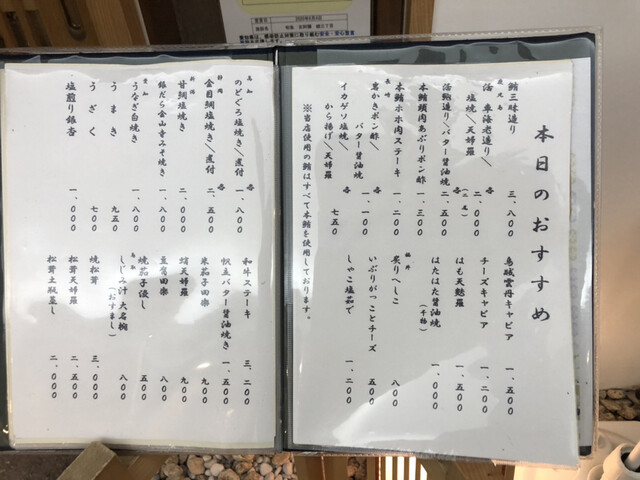 本日のおすすめ
鮪三昧造り 三、八〇〇
鹿児島
活 車海老造り／
塩焼／天婦羅 （二尾） 二、〇〇〇
活鮑造り／バター醤油焼 各 二、五〇〇
本鮪頬肉あぶりポン酢 一、三〇〇
本鮪ホホ肉ステーキ 一、二〇〇
長崎
バター醤油焼 各 一、一〇〇
イカゲソ塩焼／
から揚げ／天婦羅 各 七五〇
※当店使用の鮪はすべて本鮪を使用しております。
烏賊雲丹キャビア 一、五〇〇
チーズキャビア 一、二〇〇
はも天麩羅 一、五〇〇
はたはた醤油焼（干物） 一、〇〇〇
福井
炙りへしこ 八〇〇
いぶりがっことチーズ 五〇〇
しゃこ塩茹で 一、二〇〇
高知
のどぐろ塩焼き／煮付 各 一、八〇〇
静岡
金目鯛塩焼き／煮付 各 二、五〇〇
甘鯛塩焼き 二、〇〇〇
銀だら金山寺みそ焼き 一、八〇〇
愛知
うなぎ白焼き 一、八〇〇
うまき 九五〇
うざく 七〇〇
塩煎り銀杏 一、〇〇〇
和牛ステーキ 三、二〇〇
帆立バター醤油焼き 一、五〇〇
米茄子田楽 九〇〇
蛸天婦羅 九〇〇
豆腐田楽 八〇〇
焼茄子浸し 五〇〇
鳥取
しじみ汁 大名椀（おすまし） 八〇〇
焼松茸 三、〇〇〇
松茸天婦羅 二、五〇〇
松茸土瓶蒸し 二、〇〇〇